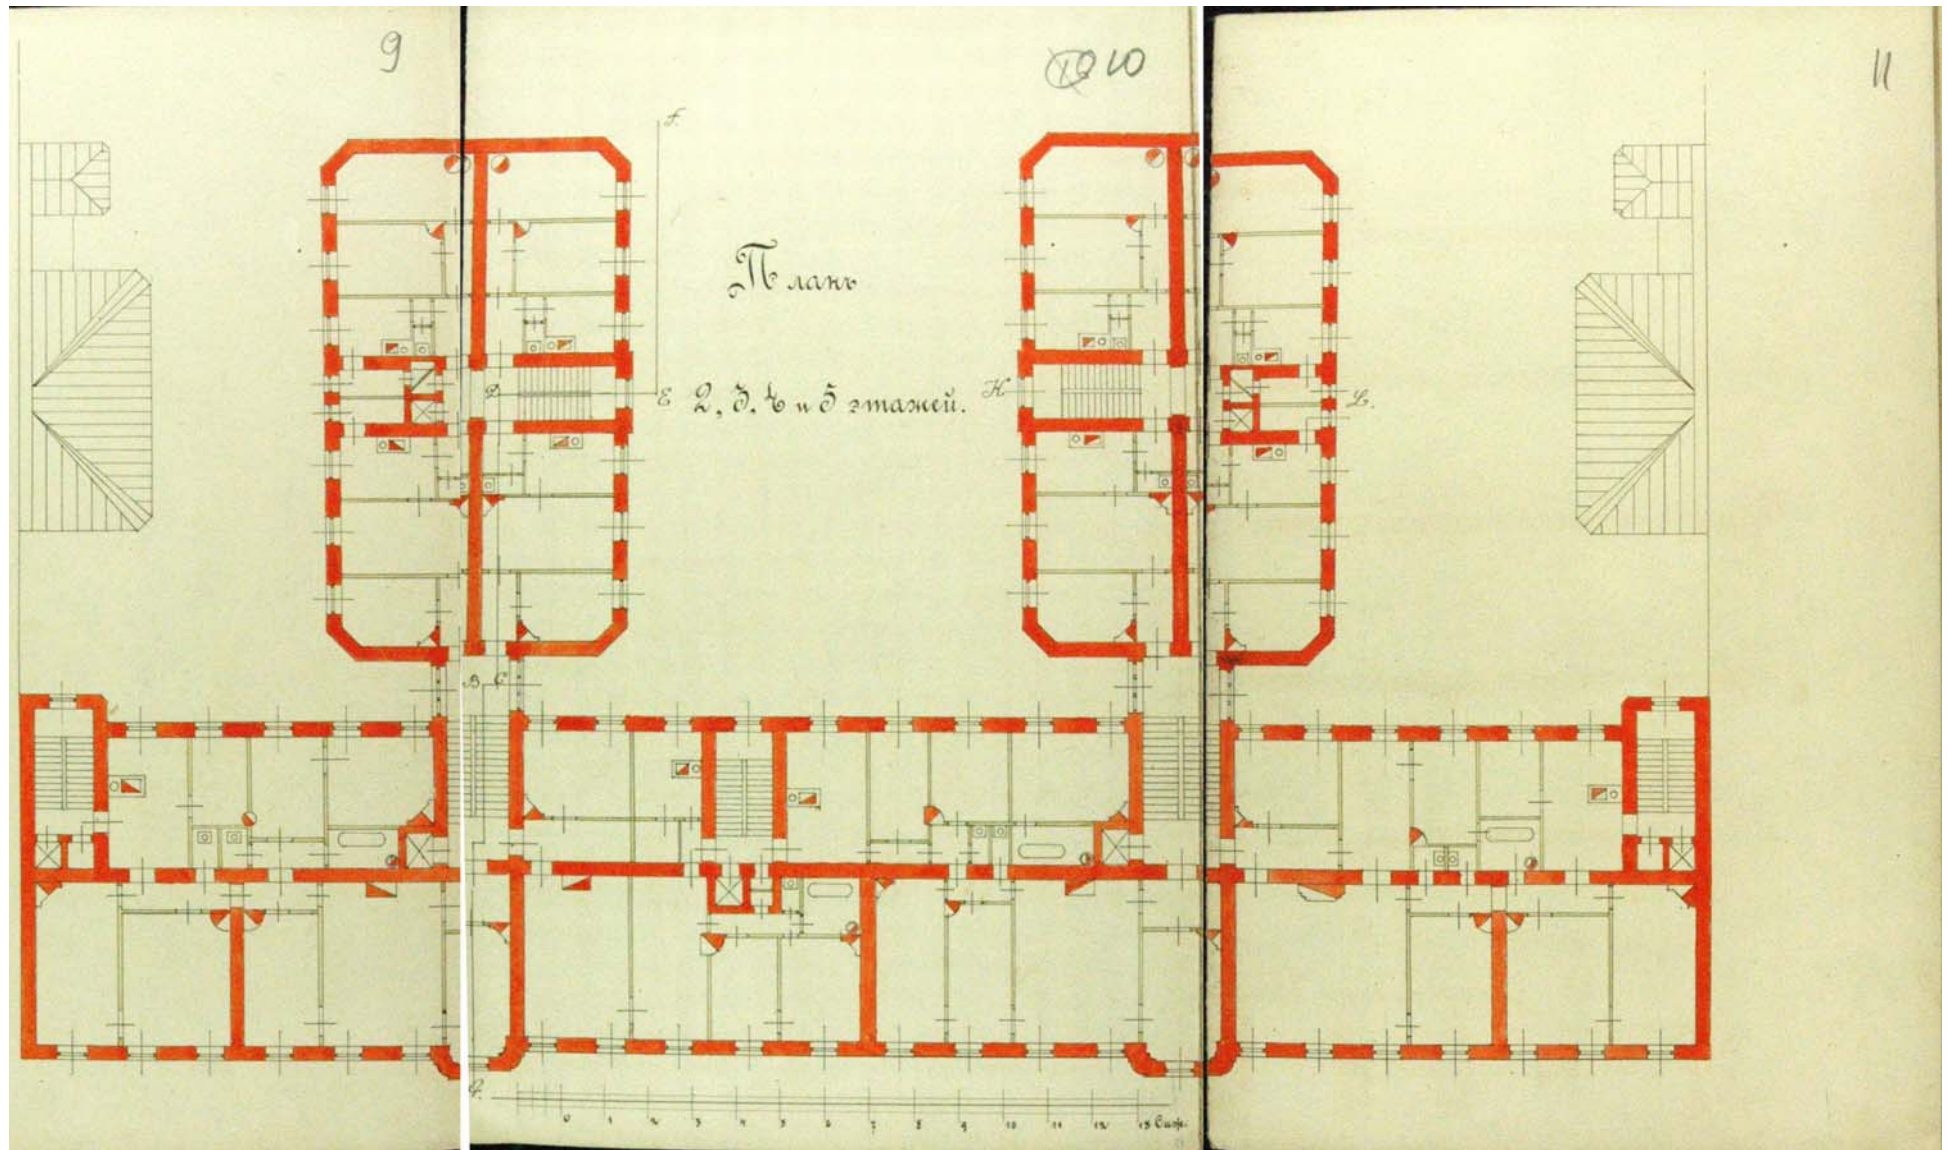 9
10
11
F.
Планъ
D
E
2, 3, 4 и 5 этажей.
K
L.
B
C
G.
0 1 2 3 4 5 6 7 8 9 10 11 12 13 Саж.